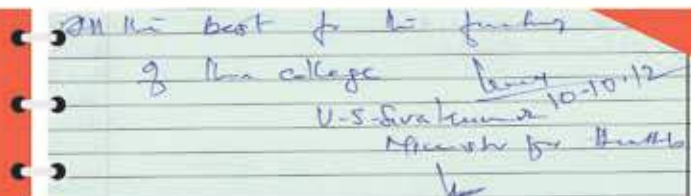 All the best for the
of the college
10-10-12
V-S-Sivakumar
Minister for Health